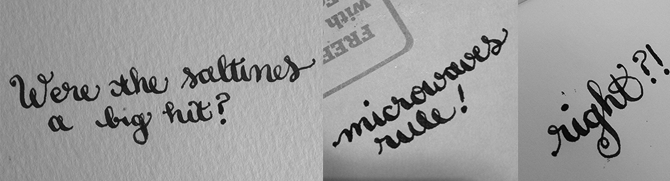 Were the saltines
a big hit?
FREE
with
microwaves
rule!
right?!